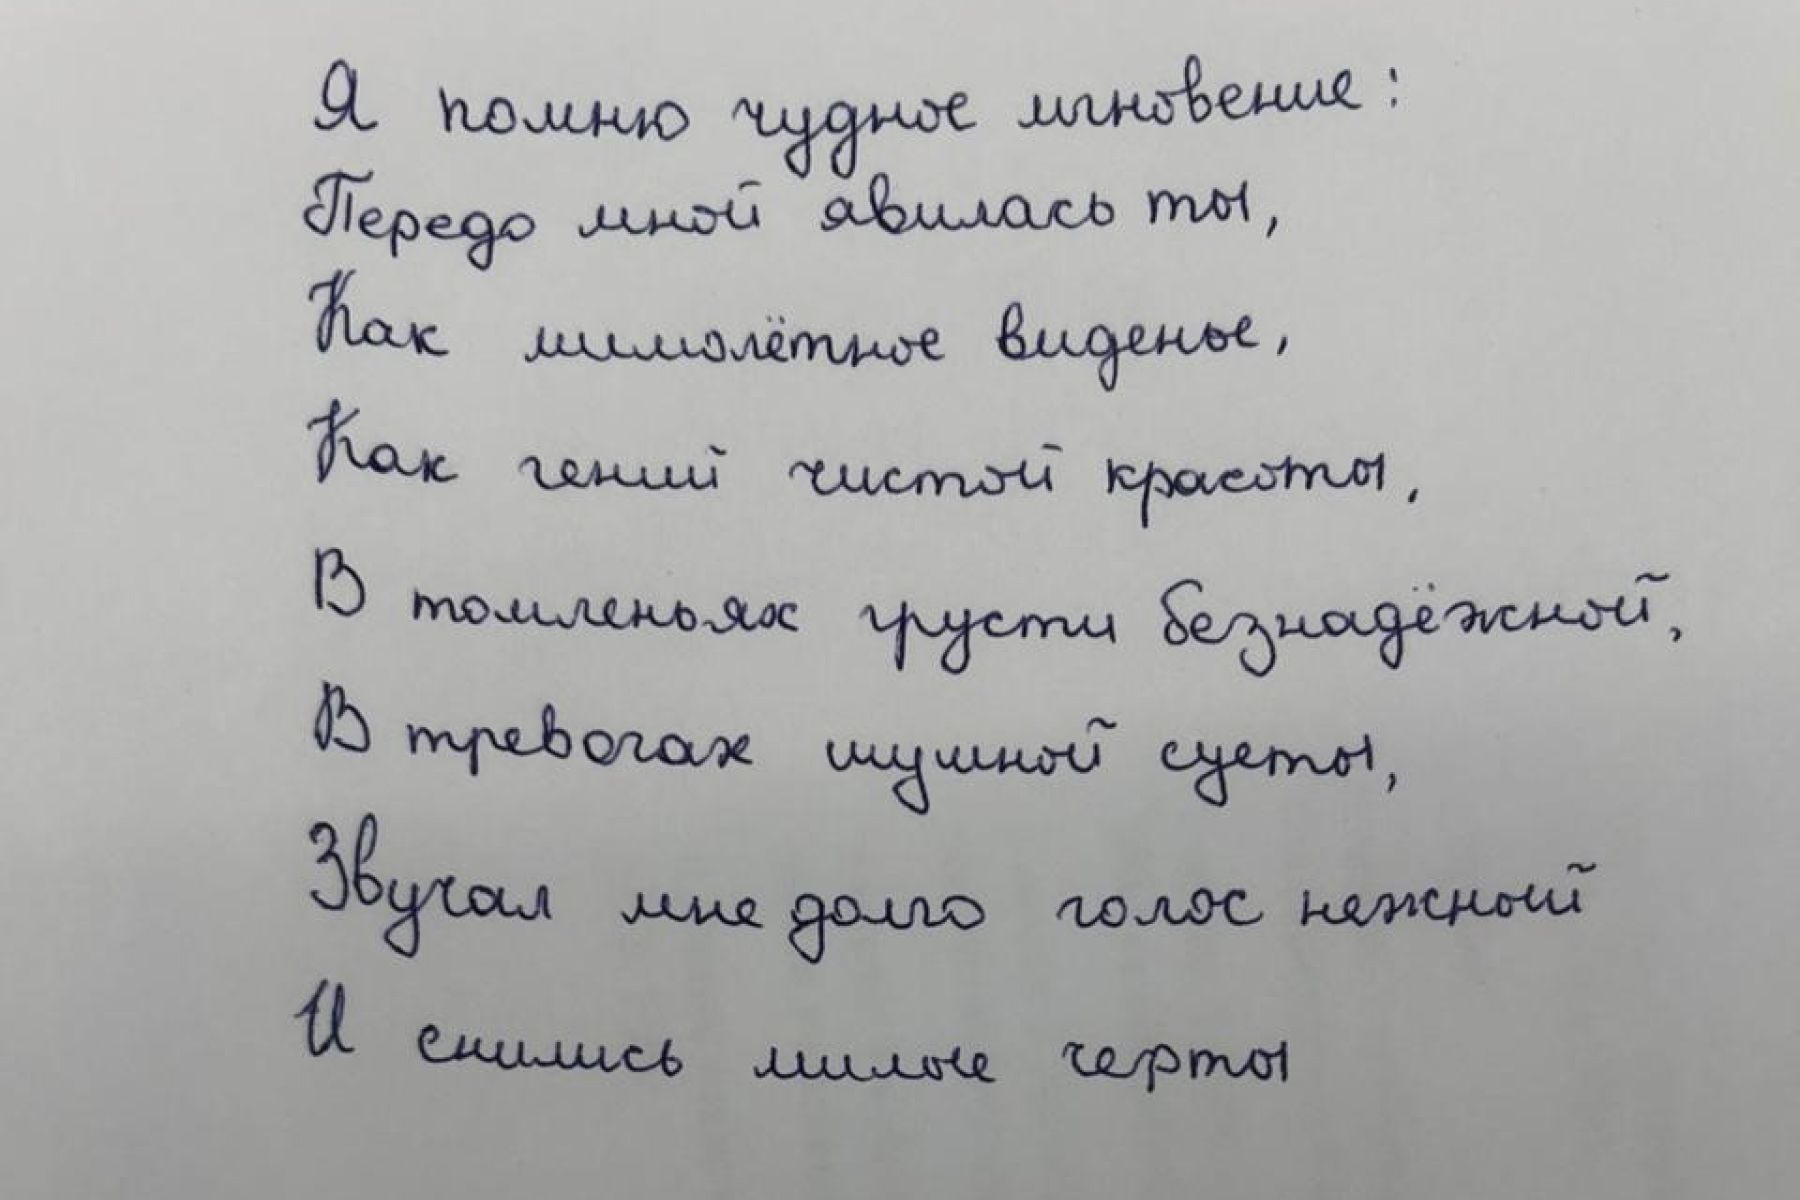 Я помню чудное мгновение:
Передо мной явилась ты,
Как мимолётное виденье,
Как гений чистой красоты,
В томленьях грусти безнадёжной,
В тревогах шумной суеты,
Звучал мне долго голос нежный
И снились милые черты